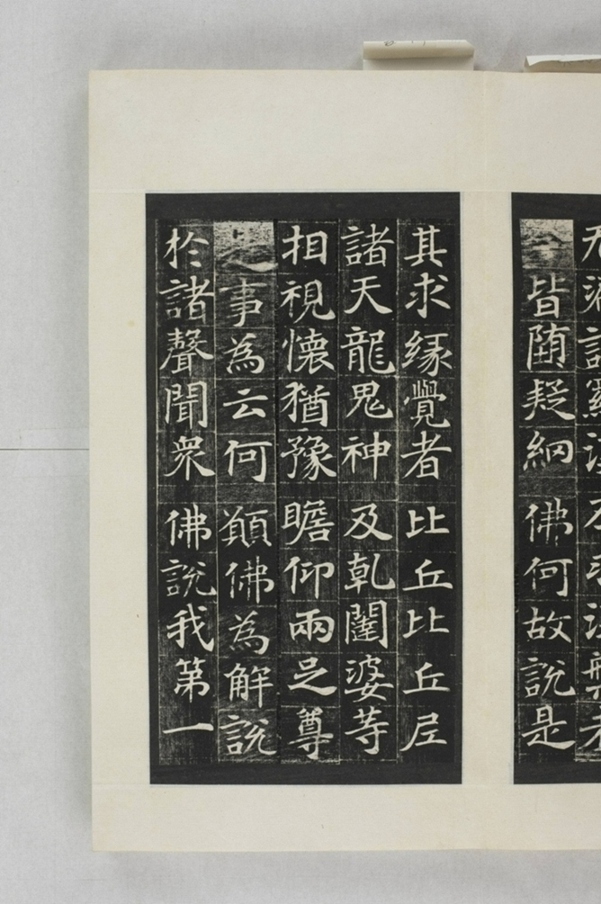 皆堕疑網佛何故説是
其求緣覺者比丘比丘尼
諸天龍鬼神及乹闥婆等
相視懷猶豫瞻仰兩足尊
事為云何願佛為解説
於諸聲聞衆佛説我第一